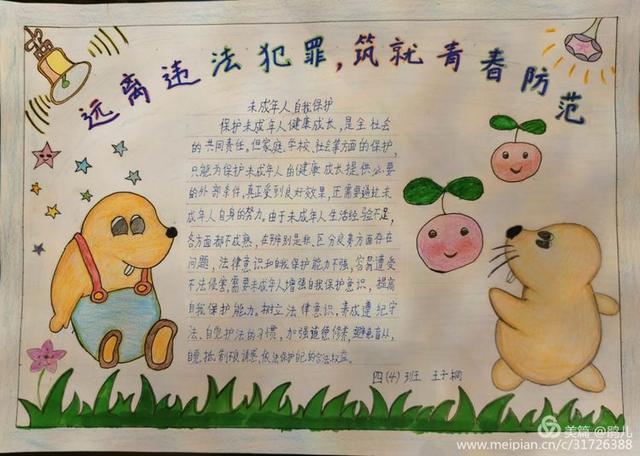 远离违法犯罪,筑就青春防范
未成年人自我保护
保护未成年人健康成长,是全社会
的共同责任。但家庭、学校、社会等方面的保护,
只能为保护未成年人的健康成长提供必要
的外部条件,真正受到良好效果,还需要通过未
成年人自身的努力。由于未成年人生活经验不足,
各方面都不成熟,在辨别是非、区分良莠方面存在
问题,法律意识和自我保护能力不强,容易遭受
不法侵害,需要未成年人增强自我保护意识,提高
自我保护能力。树立法律意识,养成遵纪守
法、自觉护法的习惯,加强道德修养,避免盲从,
自觉抵制不良诱惑,依法保护自己的合法权益。
四(4)班 王子桐
美篇 @鹃儿
www.meipian.cn/c/31726388